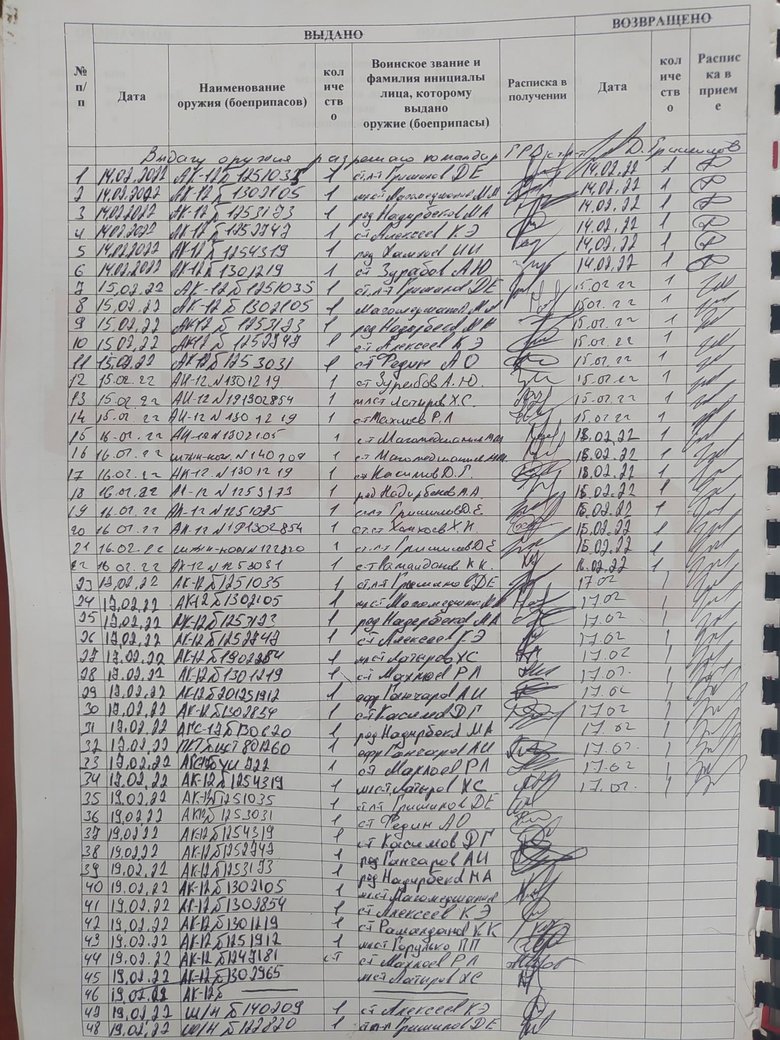 ВЫДАНО ВОЗВРАЩЕНО
№ п/п Дата Наименование оружия (боеприпасов) количество Воинское звание и фамилия инициалы лица, которому выдано оружие (боеприпасы) Расписка в получении Дата количество Расписка в приеме
Выдачу оружия разрешаю командир ГРВ Д. Гришинов
1 14.02.2022 АК-12 № 1251035 1 ст.л-т Гришинов Д Е 14.02.22 1
2 14.02.2022 АК-12 № 1302105 1 мл.ст Магомедшапиев М М 14.02.22 1
3 14.02.2022 АК-12 № 1253173 1 ряд Надирбеков М А 14.02.22 1
4 14.02.2022 АК-12 № 1252747 1 ст Алексеев К Э 14.02.22 1
5 14.02.2022 АК-12 № 1254319 1 ряд 14.02.22 1
6 14.02.2022 АК-12 № 1301219 1 ст Зурабов А Ю 14.02.22 1
7 15.02.22 АК-12 № 1251035 1 ст.л-т Гришинов Д Е 15.02.22 1
8 15.02.22 АК-12 № 1302105 1 Магомедшапиев М М 15.02.22 1
9 15.02.22 АК-12 № 1253173 1 ряд Надирбеков М А 15.02.22 1
10 15.02.22 АК-12 № 1252747 1 ст Алексеев К Э 15.02.22 1
11 15.02.22 АК-12 № 1253031 1 ст Федин А О 15.02.22 1
12 15.02.22 АК-12 № 1301219 1 ст Зурабов А.Ю. 15.02.22 1
13 15.02.22 АК-12 № 191302854 1 мл.ст Латыров Х С. 15.02.22 1
14 15.02.22 АК-12 № 1301219 1 ст Махлоев Р.Л 15.02.22 1
15 16.02.22 АК-12 № 1302105 1 ст Магомедшапиев 16.02.22 1
16 16.02.22 штык-нож № 140209 1 ст Магомедшапиев 16.02.22 1
17 16.02.22 АК-12 № 1301219 1 ст Касимов Д.Г. 16.02.22 1
18 16.02.22 АК-12 № 1253173 1 ряд Надирбеков М.А. 16.02.22 1
19 16.02.22 АК-12 № 1251035 1 ст.л-т Гришинов Д Е. 16.02.22 1
20 16.02.22 АК-12 № 191302854 1 16.02.22 1
21 16.02.22 штык-нож № 122820 1 ст.л-т Гришинов Д Е 16.02.22 1
22 16.02.22 АК-12 № 1253031 1 ст Рамалданов К К. 16.02.22 1
23 17.02.22 АК-12 № 1251035 1 ст.л-т Гришинов Д Е 17.02 1
24 17.02.22 АК-12 № 1302105 1 мл.ст Магомедшапиев 17.02 1
25 17.02.22 АК-12 № 1253173 1 ряд Надирбеков М А 17.02 1
26 17.02.22 АК-12 № 1252747 1 ст Алексеев К Э 17.02 1
27 17.02.22 АК-12 № 1 мл.ст Латыров Х С 17.02 1
28 17.02.22 АК-12 № 1301219 1 ст Махлоев Р Л 17.02. 1
29 17.02.22 АК-12 № 201251912 1 Гончаров А И 17.02 1
30 17.02.22 АК-12 № 1302854 1 ст Касимов Д Г 17.02 1
31 17.02.22 1 ряд Надирбеков М А 17.02 1
32 17.02.22 1 Гончаров А И 17.02. 1
33 17.02.22 1 ст Махлоев Р Л 17.02 1
34 17.02.22 АК-12 № 1254319 1 мл.ст Латыров Х С 17.02. 1
35 19.02.22 АК-12 № 1251035 1 ст.л-т Гришинов Д Е
36 19.02.22 АК12 № 1253031 1 ст Федин А О
37 19.02.22 АК-12 № 1254319 1 ст Касимов Д Г
38 19.02.22 АК-12 № 1252747 1 ряд Гончаров А И
39 19.02.22 АК-12 № 1253173 1 ряд Надирбеков М А
40 19.02.22 АК-12 № 1302105 1 мл.ст Магомедшапиев
41 19.02.22 АК-12 № 1302854 1 ст Алексеев К Э
42 19.02.22 АК-12 № 1301219 1 ст Рамалданов К К
43 19.02.22 АК-12 № 1251912 1 мл.ст Горулько П П
44 19.02.22 АК-12 № 1247181 ст Махлоев Р Л
45 19.02.22 АК-12 № 1302965 мл.ст Латыров Х С
46 19.02.22 АК-12 №
47 19.02.22 Ш/Н № 140209 1 ст Алексеев К Э
48 19.02.22 Ш/Н № 122820 1 ст.л-т Гришинов Д Е